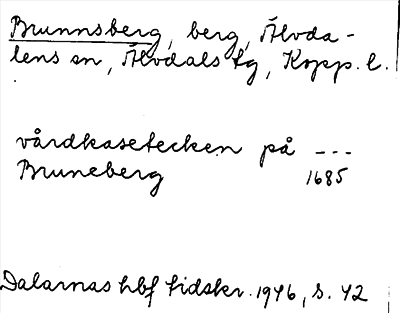 Brunnsberg, berg, Älvda-
lens sn, Älvdals tg, Kopp. l.
vårdkasetecken på ---
Bruneberg 1685
Dalarnas hbf tidskr. 1946, s. 42